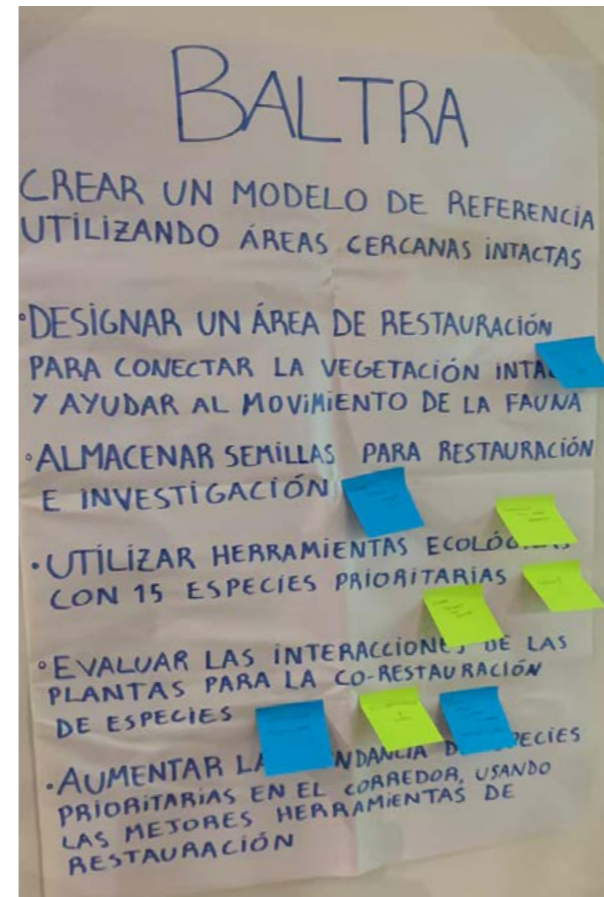 BALTRA
CREAR UN MODELO DE REFERENCIA
UTILIZANDO ÁREAS CERCANAS INTACTAS
• DESIGNAR UN ÁREA DE RESTAURACIÓN
PARA CONECTAR LA VEGETACIÓN
Y AYUDAR AL MOVIMIENTO DE LA FAUNA
• ALMACENAR SEMILLAS PARA RESTAURACIÓN
E INVESTIGACIÓN
• UTILIZAR HERRAMIENTAS
CON 15 ESPECIES PRIORITARIAS
• EVALUAR LAS INTERACCIONES DE LAS
PLANTAS PARA LA CO-RESTAURACIÓN
DE ESPECIES
• AUMENTAR
PRIORITARIAS EN EL CORREDOR, USANDO
LAS MEJORES HERRAMIENTAS DE
RESTAURACIÓN